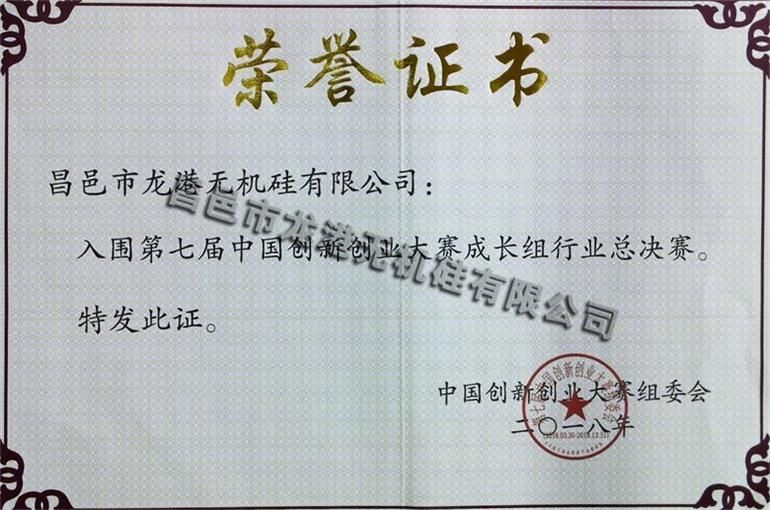 荣誉证书
昌邑市龙港无机硅有限公司：
入围第七届中国创新创业大赛成长组行业总决赛。
特发此证。
中国创新创业大赛组委会
二〇一八年
昌邑市龙港无机硅有限公司